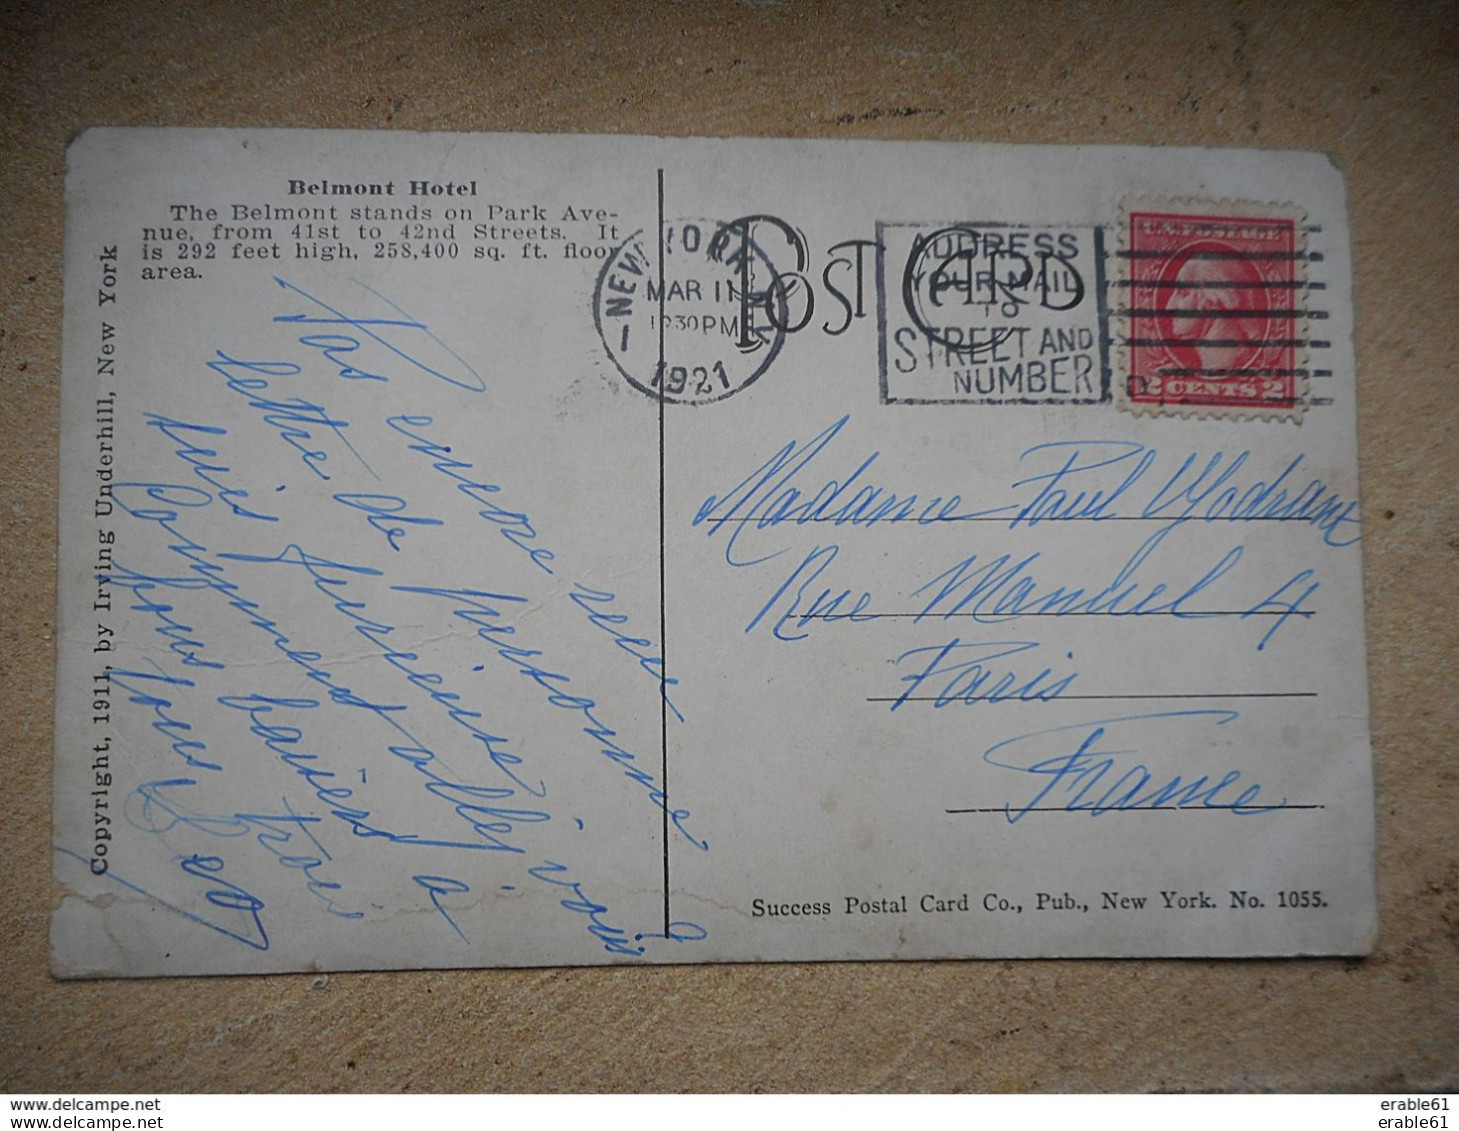 Belmont Hotel
The Belmont stands on Park Ave-
nue, from 41st to 42nd Streets. It
is 292 feet high, 258,400 sq. ft. floor
area.
Copyright, 1911, by Irving Underhill, New York
Pas encore reçu
lettre de personne
suis furieuse
Comment allez vous
tous baisers à
tous trois
Leo
NEW YORK N.Y.
MAR 11
1230 PM
1921
POST CARD
ADDRESS
YOUR MAIL
TO
STREET AND
NUMBER
U.S. POSTAGE
2 CENTS 2
Madame Paul
Rue Manuel 4
Paris
France
Success Postal Card Co., Pub., New York. No. 1055.
www.delcampe.net
erable61
www.delcampe.net
erable61